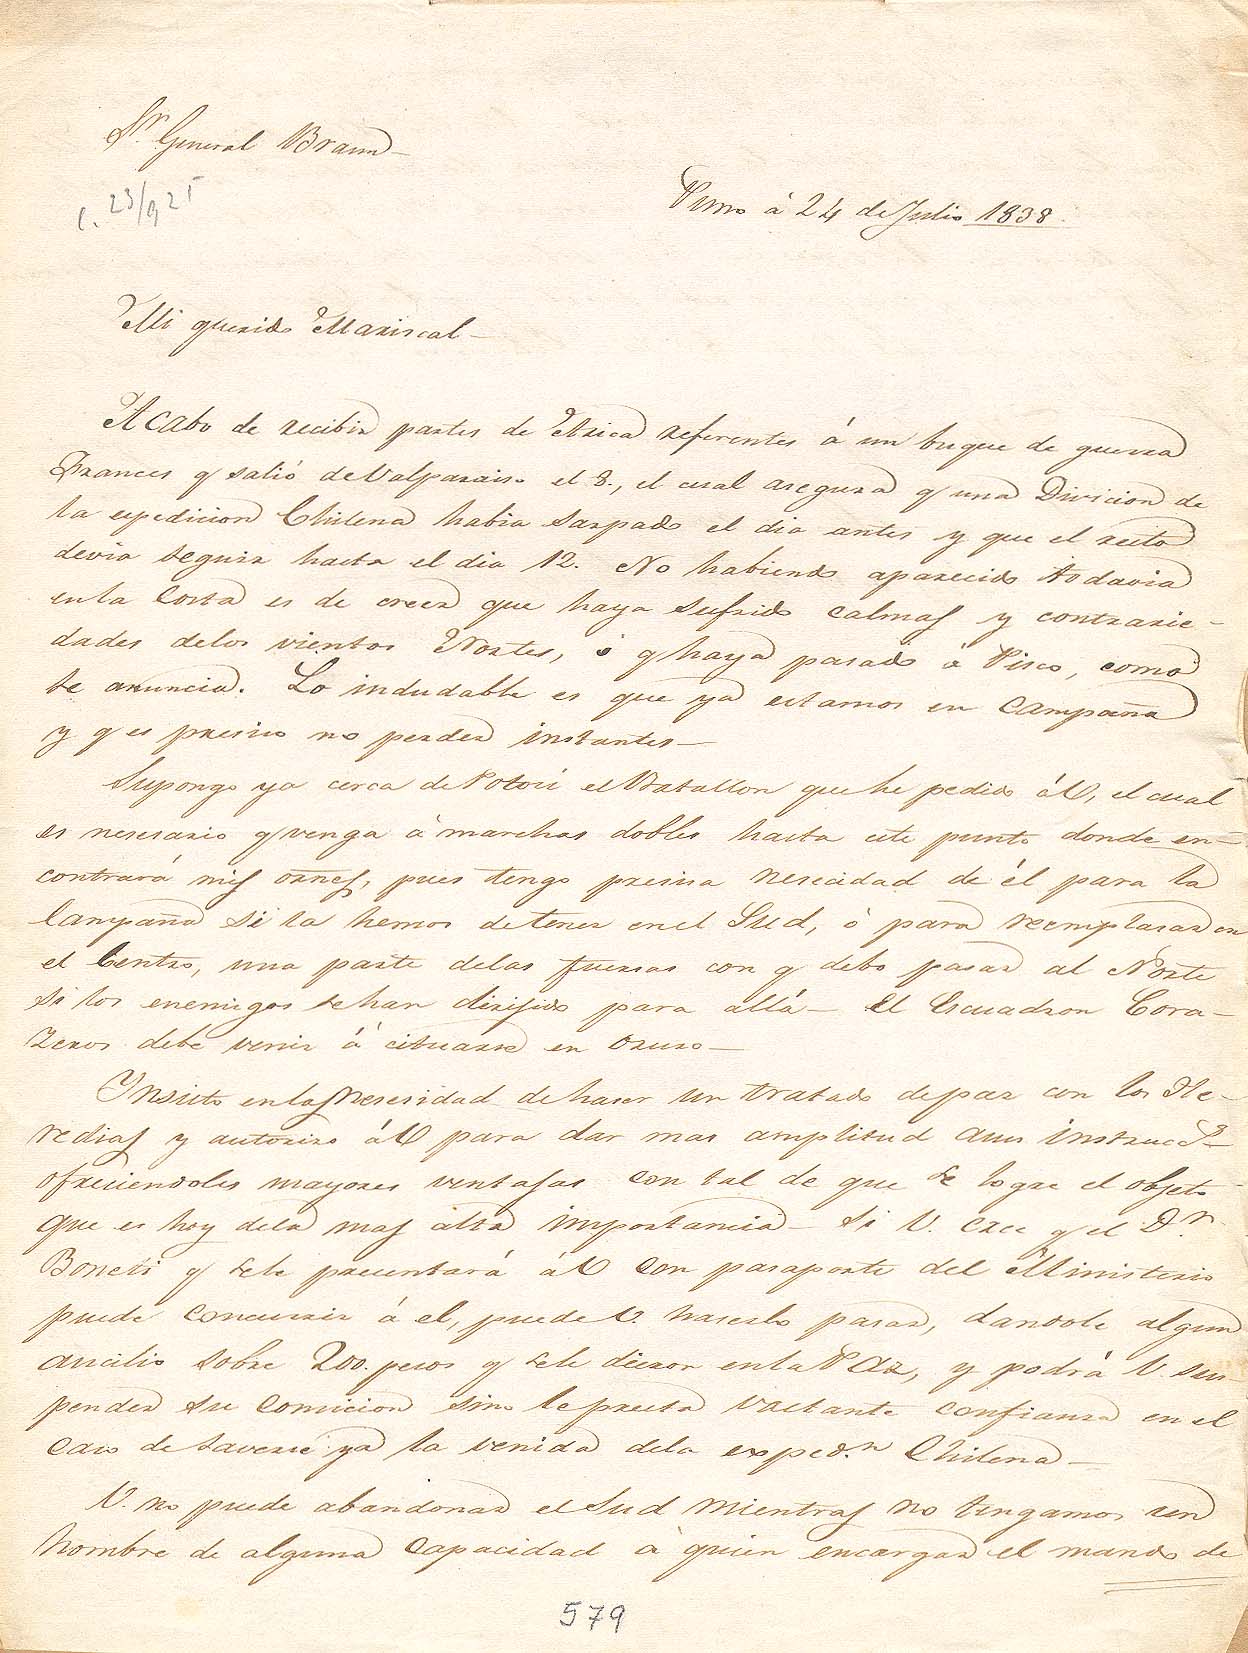 Sr. General Braun
C. 23/925
Puno à 24 de Julio 1838.
Mi querido Mariscal
Acabo de recibir partes de Arica referentes á un buque de guerra
Frances q salió de Valparaiso el 3., el cual asegura q una Divicion de
la espedicion Chilena habia sarpado el dia antes y que el resto
devia seguir hasta el dia 12. No habiendo aparecido todavia
en la Costa es de creer que haya sufrido calmas y contrarie-
dades de los vientos Nortes, ó q haya pasado à Pisco, como
se anuncia. Lo indudable es que ya estamos en Campaña
y q es presiso no perder instantes—
Supongo ya cerca de Potosí el Batallon que he pedido á V, el cual
es nesesario q venga á marchas dobles hasta este punto donde en-
contrará mis orñes, pues tengo presisa nesecidad de él para la
Campaña si la hemos de tener en el Sud, ò para reemplasar en
el Centro, una parte de las fuersas con q debo pasar al Norte
si los enemigos se han dirijido para allá— El Escuadron Cora-
zeros debe venir á cituarse en Oruro—
Insisto en la nesesidad de haser un tratado de paz con los He-
redias y autoriso á V para dar mas amplitud a sus instrucs.
ofreciendoles mayores ventajas con tal de que se logre el objeto
que es hoy de la mas alta importancia— Si V. cree q el Dr.
Boneti q se le presentará á V con pasaporte del Ministerio
puede concurrir á el, puede V. haserlo pasar, dandole algun
aucilio sobre 200. pesos q se le dieron en la Paz, y podrá V. sus-
pender su comicion sino le presta vastante confiansa en el
caso de saverse ya la venida de la exped.n Chilena—
V. no puede abandonar el Sud mientras no tengamos un
hombre de alguna capacidad à quien encargar el mando de
579